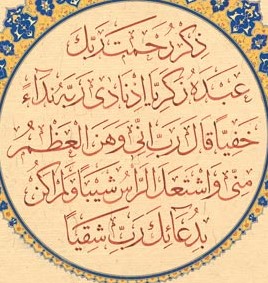 ذِكْرُ رَحْمَتِ رَبِّكَ
عَبْدَهُ زَكَرِيَّا إِذْ نَادَىٰ رَبَّهُ نِدَآءً
خَفِيًّا قَالَ رَبِّ إِنِّي وَهَنَ الْعَظْمُ
مِنِّي وَاشْتَعَلَ الرَّأْسُ شَيْبًا وَلَمْ أَكُنْ
بِدُعَآئِكَ رَبِّ شَقِيًّا